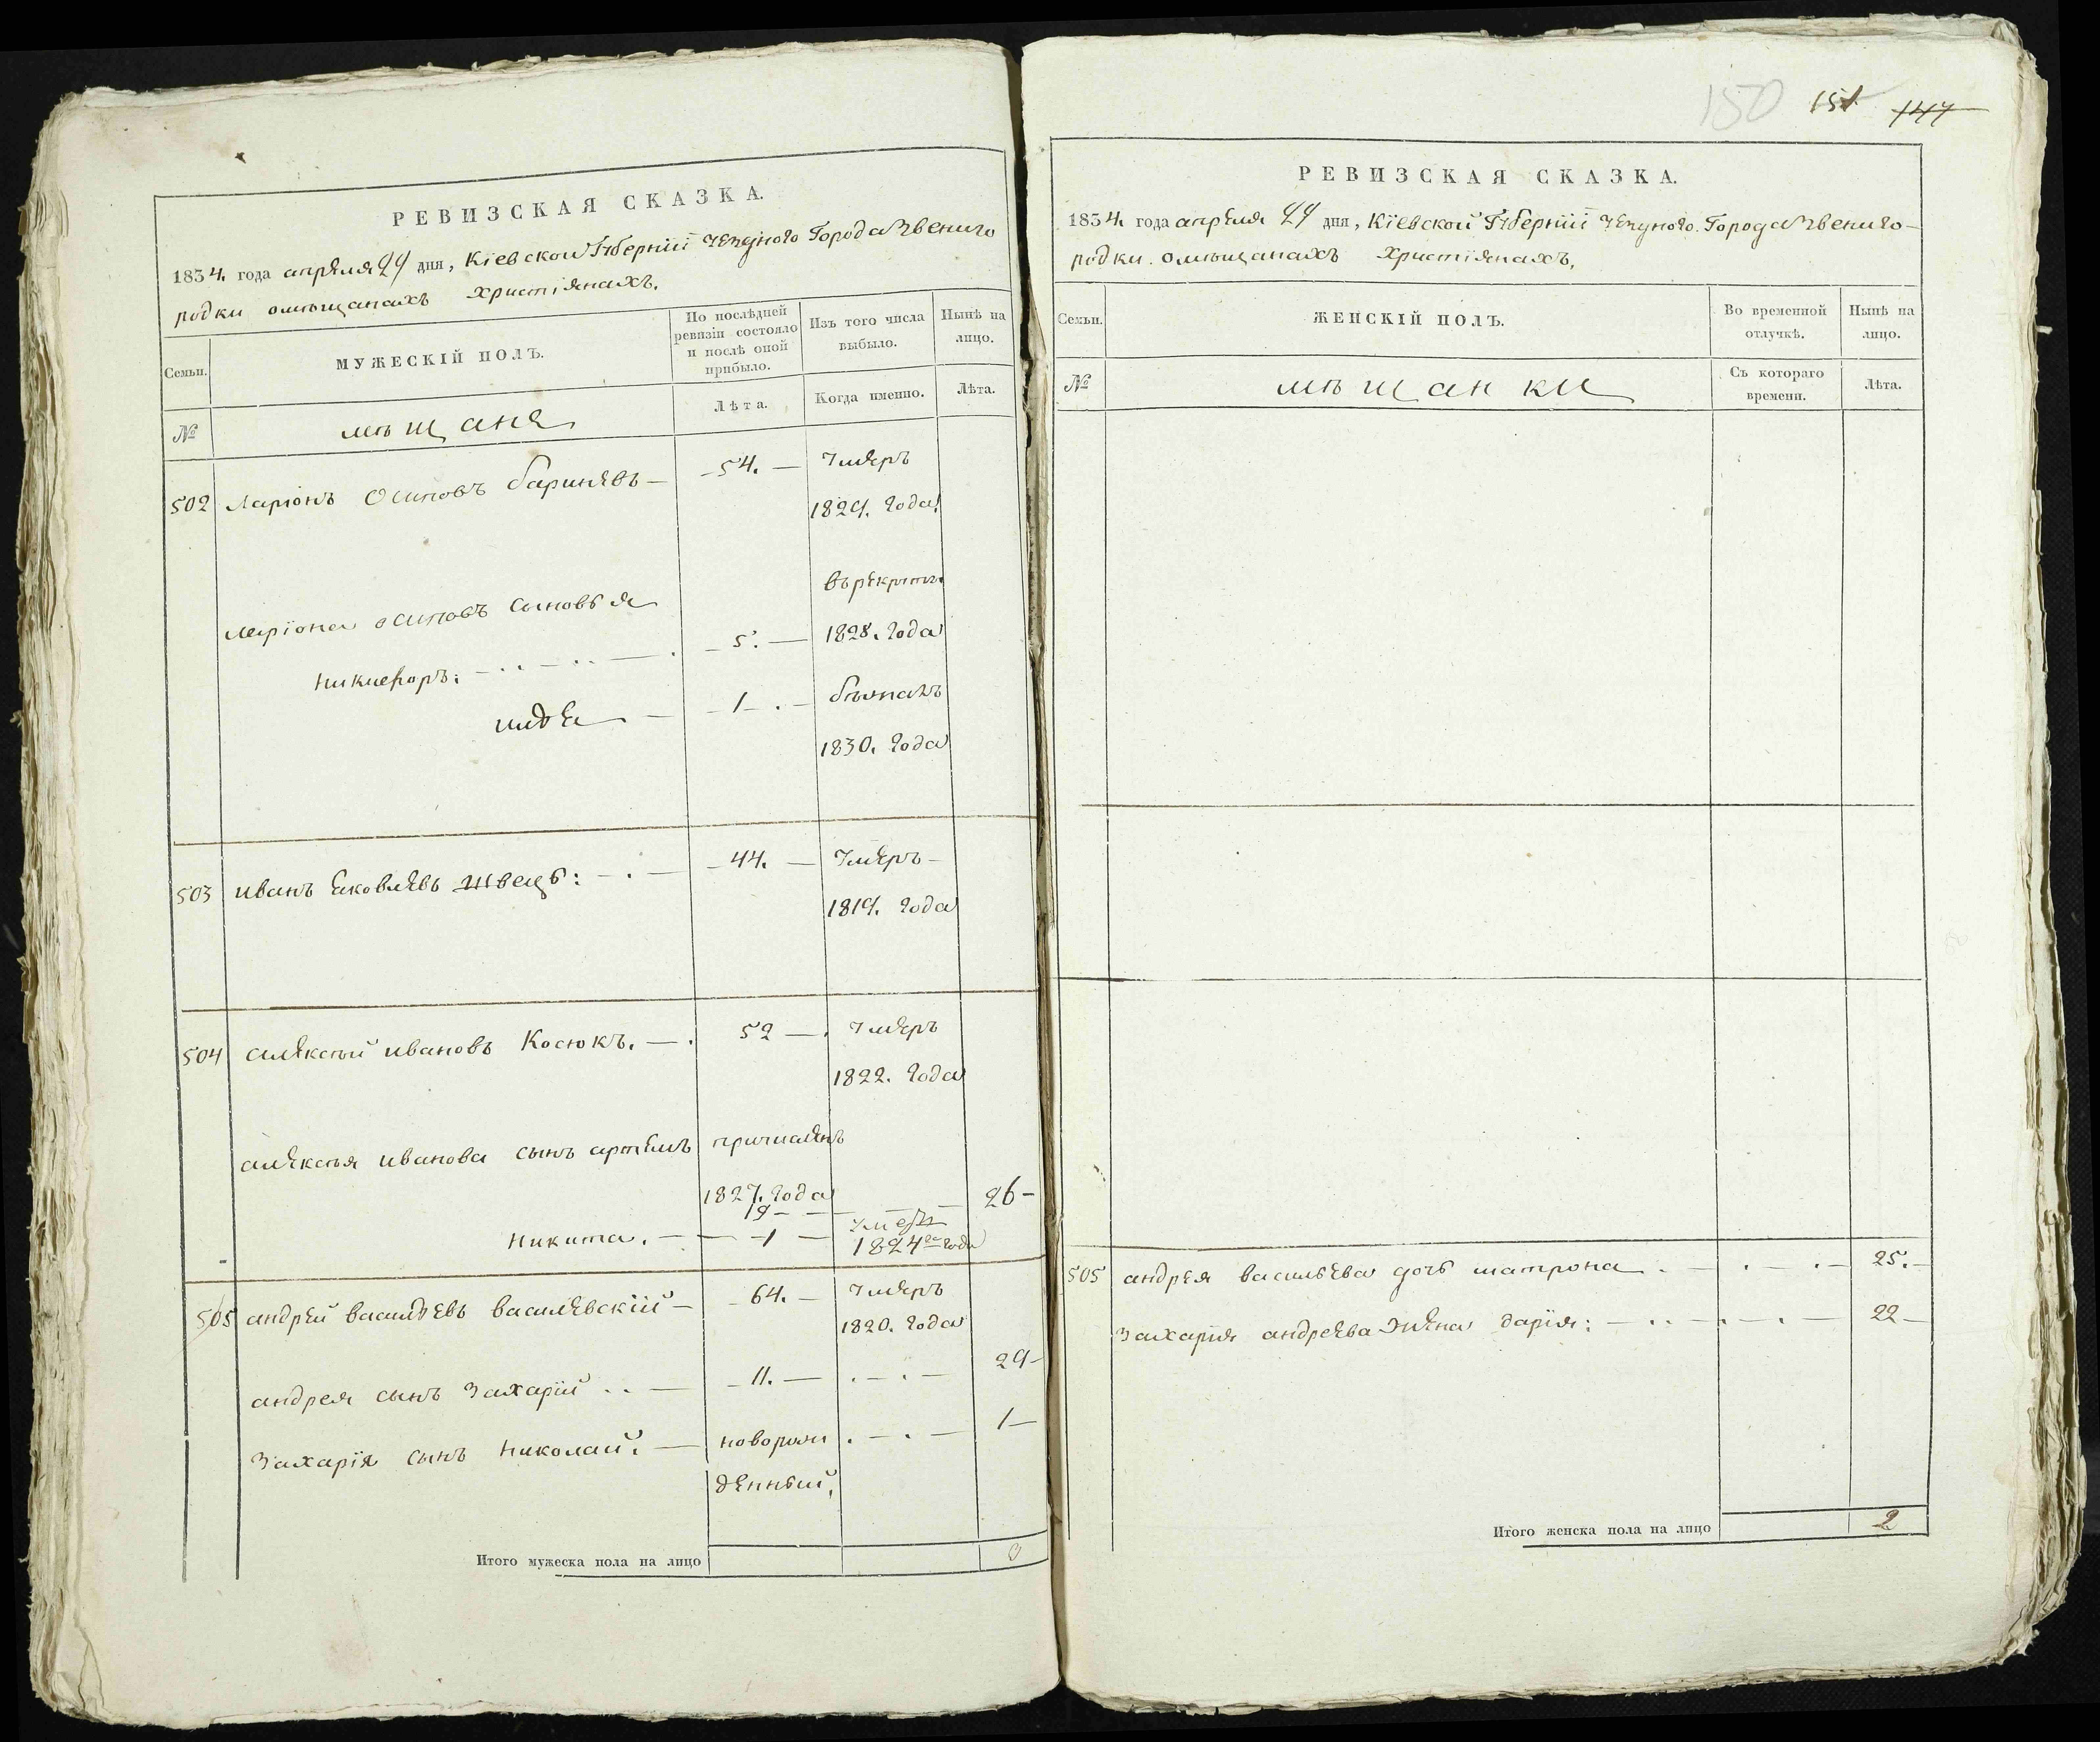 РЕВИЗСКАЯ СКАЗКА.
1834. года апреля 29 дня, Кіевской Губерніи Уезднаго Города Звениго
родки омѣщанахъ христіянахъ.
Семьи. МУЖЕСКІЙ ПОЛЪ. По послѣдней ревизіи состояло и послѣ оной прибыло. Изъ того числа выбыло. Нынѣ на лицо.
№ мѣщане Лѣта. Когда именно. Лѣта.
502 Ларіонъ Осиповъ — 54. — Умеръ
1829. года
въ рекруты
Ларіона осиповъ сыновья
никифоръ: — 5. — 1828. года
— 1 — бѣжалъ
1830. года
503 иванъ Яковлевъ Швецъ: — 44. — Умеръ —
1819. года
504 алексѣй ивановъ Косюкъ. — 52 — Умеръ
1822. года
алексѣя иванова сынъ артемъ причисленъ
1827. года
19 — — 26 —
никита. — 1 — Умеръ
1824го года
505 андрей васильевъ василевскій — 64. — Умеръ
1820. года
андрея сынъ Захарій — 11. — 29 —
Захарія сынъ николай. — новорож 1 —
денный,
Итого мужеска пола на лицо 3
150 151 147
РЕВИЗСКАЯ СКАЗКА.
1834. года апреля 29 дня, Кіевской Губерніи Уезднаго Города Звениго-
родки омѣщанахъ Христіянахъ,
Семьи. ЖЕНСКІЙ ПОЛЪ. Во временной отлучкѣ. Нынѣ на лицо.
№ мѣщанки Съ котораго времени. Лѣта.
505 андрея васильева дочь матрона — 25. —
Захарія андреева жена дарія: — 22 —
Итого женска пола на лицо 2